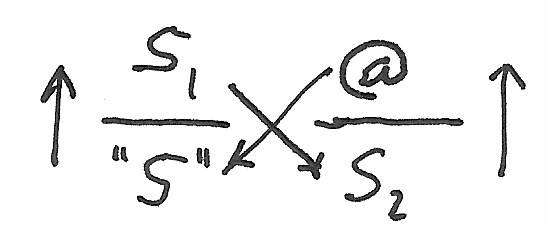 S₁ @
"S" S₂